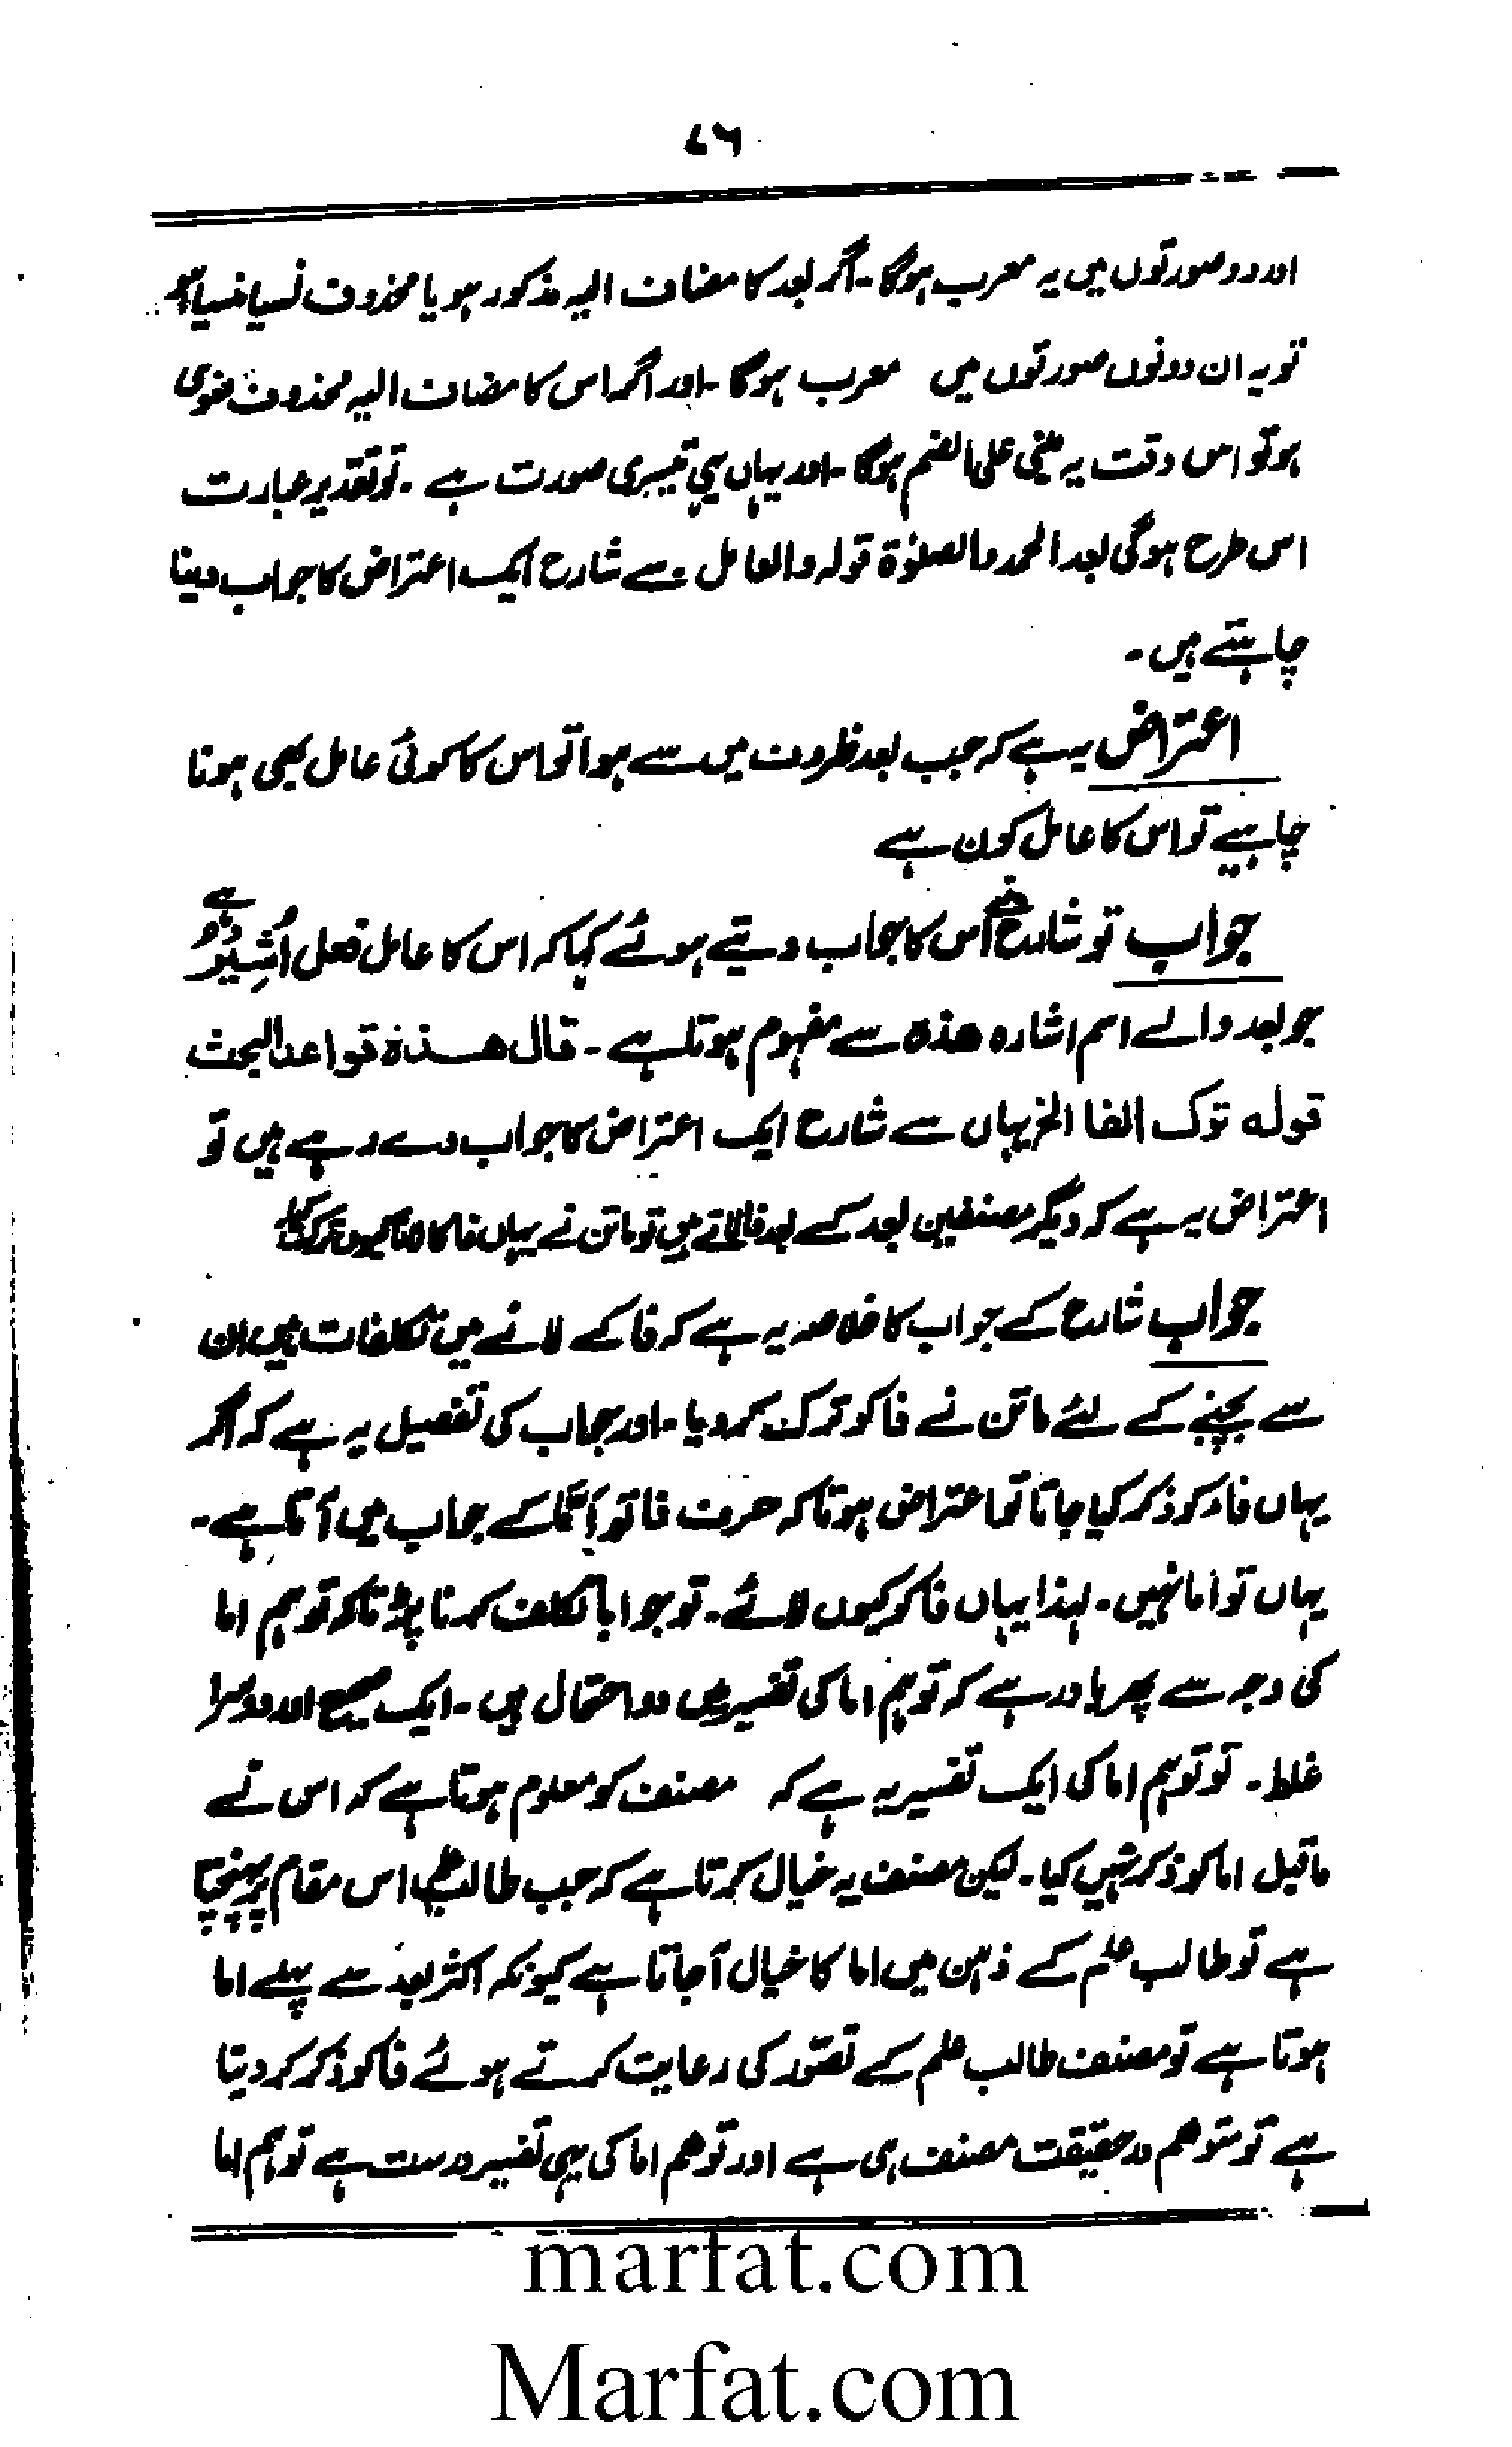 ۷۶
اور دو صورتوں میں یہ معرب ہوگا۔ اگر بعد کا مضاف الیہ مذکور ہو یا محذوف نسیا منسیا ہو
تو یہ ان دونوں صورتوں میں معرب ہوگا۔ اور اگر اس کا مضاف الیہ محذوف منوی
ہو تو اس وقت یہ مبنی علی الضم ہوگا۔ اور یہاں یہی تیسری صورت ہے۔ تو تقدیر عبارت
اس طرح ہوگی بعد الحمد والصلوٰۃ قولہ والعامل سے شارح ایک اعتراض کا جواب دینا
چاہتے ہیں۔
اعتراض یہ ہے کہ جب بعد ظروف میں سے ہوا تو اس کا کوئی عامل بھی ہونا
چاہیے تو اس کا عامل کون ہے
جواب تو شارح نے اس کا جواب دیتے ہوئے کہا کہ اس کا عامل فعل اُشِیْرُ ہے
جو بعد والے اسم اشارہ ھذہ سے مفہوم ہوتا ہے۔ قال ھذہٖ قواعد البحث
قولہ ترک الفا الخ یہاں سے شارح ایک اعتراض کا جواب دے رہے ہیں تو
اعتراض یہ ہے کہ دیگر مصنفین بعد کے بعد فا لاتے ہیں تو ماتن نے یہاں فا کا لانا کیوں ترک کیا
جواب شارح کے جواب کا خلاصہ یہ ہے کہ فا کے لانے میں تکلفات ہیں ان
سے بچنے کے لئے ماتن نے فا کو ترک کر دیا۔ اور جواب کی تفصیل یہ ہے کہ اگر
یہاں فاء کو ذکر کیا جاتا تو اعتراض ہوتا کہ حرف فا تو اَمَّا کے جواب میں آتا ہے۔
یہاں تو اما نہیں۔ لہذا یہاں فا کو کیوں لائے۔ تو جوابا تکلف کرنا پڑتا کہ توہم اما
کی وجہ سے پھر یاد رہے کہ توہم اما کی تفسیر میں دو احتمال ہیں۔ ایک صحیح اور دوسرا
غلط۔ تو توہم اما کی ایک تفسیر یہ ہے کہ مصنف کو معلوم ہوتا ہے کہ اس نے
ماقبل اما کو ذکر نہیں کیا۔ لیکن مصنف یہ خیال کرتا ہے کہ جب طالب علم اس مقام پر پہنچتا
ہے تو طالب علم کے ذہن میں اما کا خیال آ جاتا ہے کیونکہ اکثر بعد سے پہلے اما
ہوتا ہے تو مصنف طالب علم کے تصوّر کی رعایت کرتے ہوئے فا کو ذکر کر دیتا
ہے تو متوھم درحقیقت مصنف ہی ہے اور توھم اما کی یہی تفسیر درست ہے توہم اما
marfat.com
Marfat.com